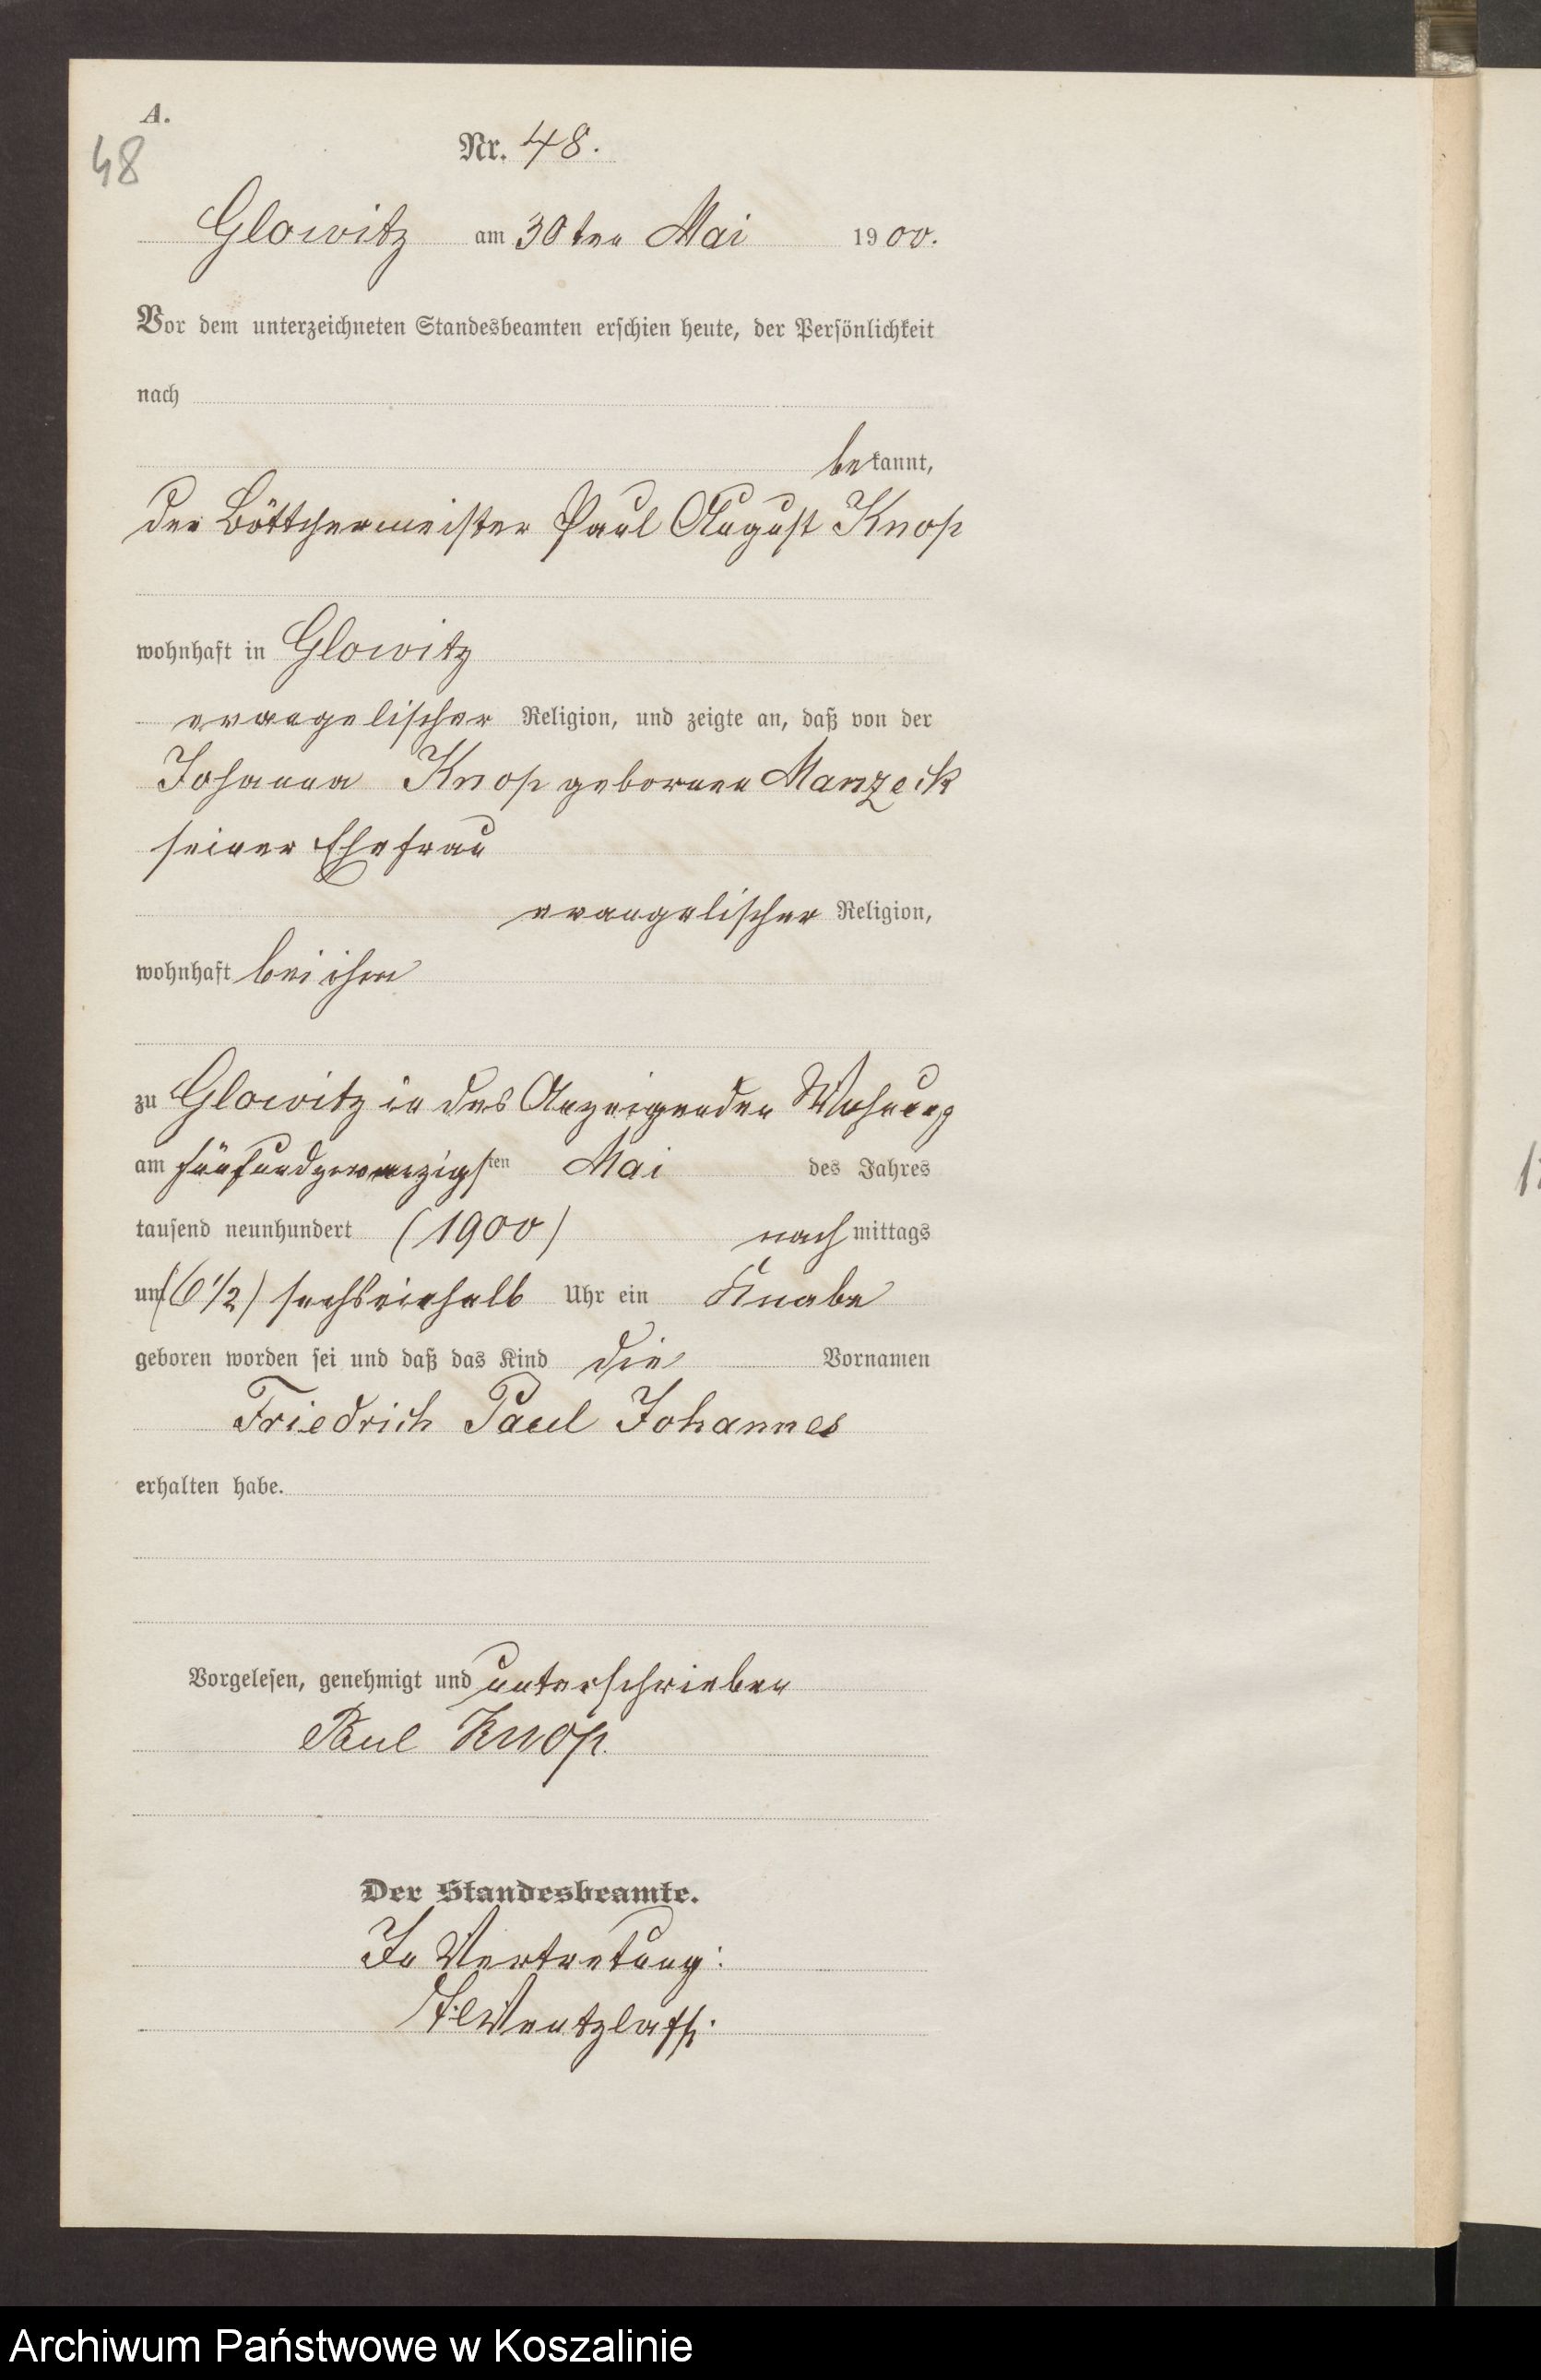 A.
48
Nr. 48.
Glowitz am 30ten Mai 1900.
Vor dem unterzeichneten Standesbeamten erschien heute, der Persönlichkeit
nach
bekannt,
der Böttchermeister Paul August Knop
wohnhaft in Glowitz
evangelischer Religion, und zeigte an, daß von der
Johanna Knop geborenen Manzeck
seiner Ehefrau
evangelischer Religion,
wohnhaft bei ihm
zu Glowitz in des Anzeigenden Wohnung
am fünfundzwanzigsten Mai des Jahres
tausend neunhundert (1900) nachmittags
um (6 1/2) sechseinhalb Uhr ein Knabe
geboren worden sei und daß das Kind die Vornamen
Friedrich Paul Johannes
erhalten habe.
Vorgelesen, genehmigt und unterschrieben
Paul Knop.
Der Standesbeamte.
In Vertretung:
Wentzlaff.
Archiwum Państwowe w Koszalinie